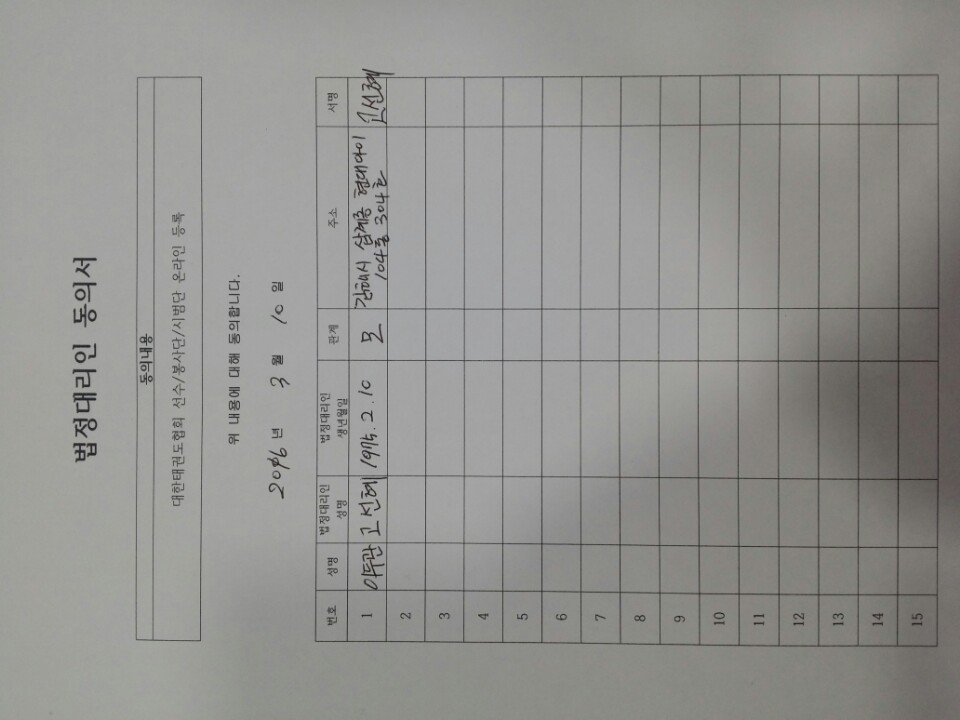 법정대리인 동의서
동의내용
대한태권도협회 선수/봉사단/시범단 온라인 등록
위 내용에 대해 동의합니다.
2016년 3월 10일
번호 성명 법정대리인 성명 법정대리인 생년월일 관계 주소 서명
1 이두관 고선혜 1975.2.10 모 김해시 삼계동 현대아이
104동 304호
2
3
4
5
6
7
8
9
10
11
12
13
14
15